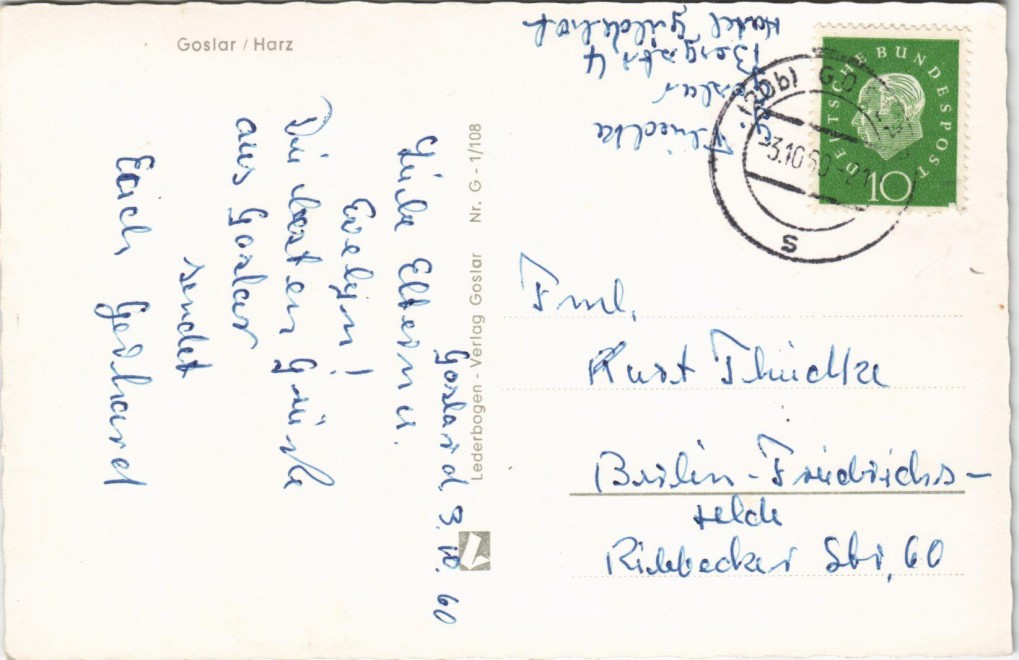 Goslar / Harz
Goslar d 3. 10. 60
Liebe Eltern u.
Evelyn!
Die besten Grüße
aus Goslar
sendet
Euch Gerhard
Lederbogen - Verlag Goslar Nr. G - 1/108
Thiedke
Goslar
Bergstr 4
Hotel
DEUTSCHE BUNDESPOST
10
(20b) GO
-3.10.60
S
Fml.
Kurt Thiedke
Berlin-Friedrichs-
felde
Str, 60